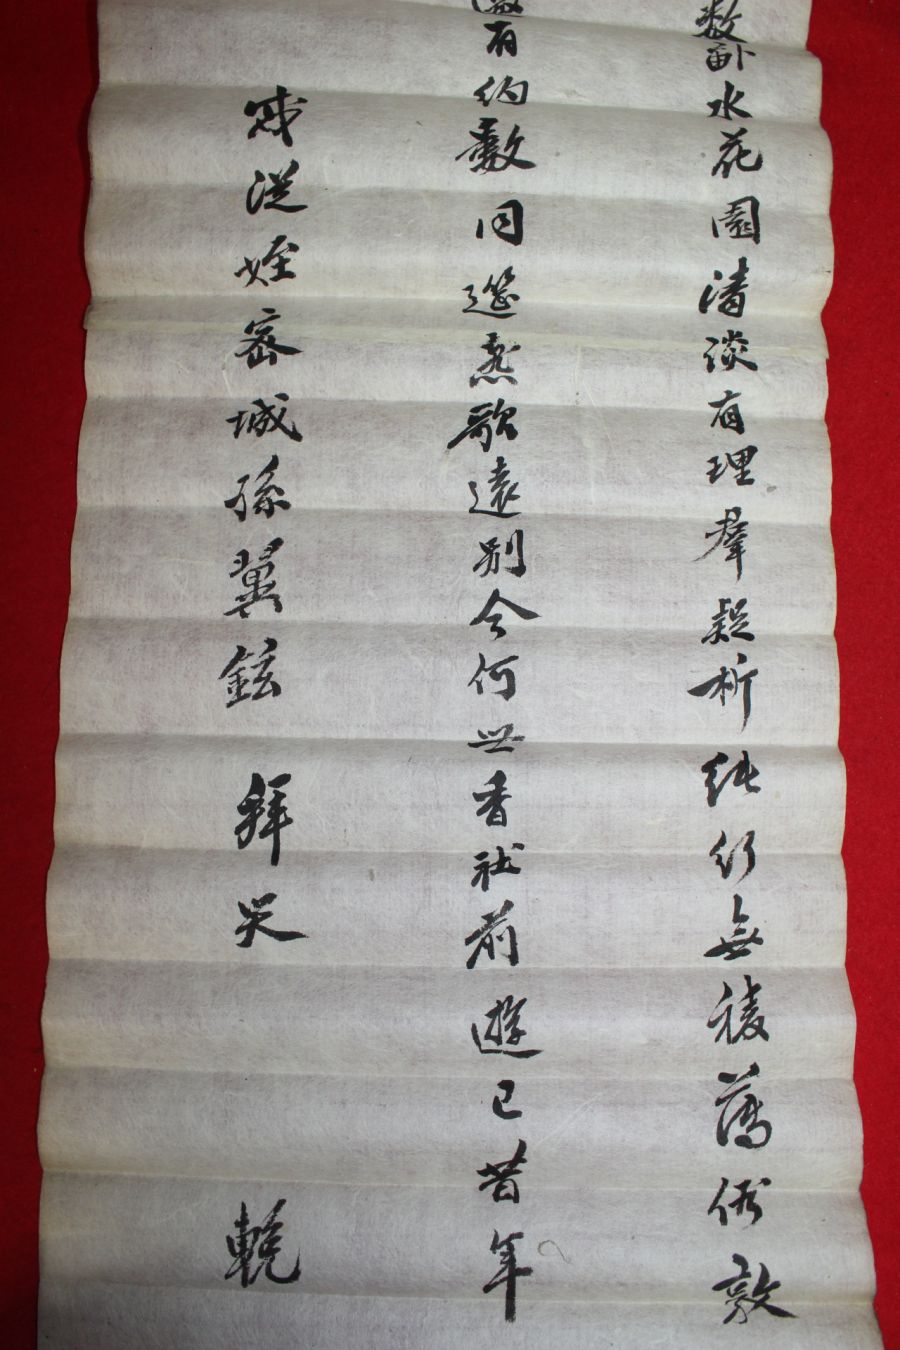 數畝水花園清談有理羣疑析純行無稜薄俗敦
有約數同遊悲歌遠別今何世香社前遊已昔年
戚從姪密城孫翼鉉 拜哭 輓